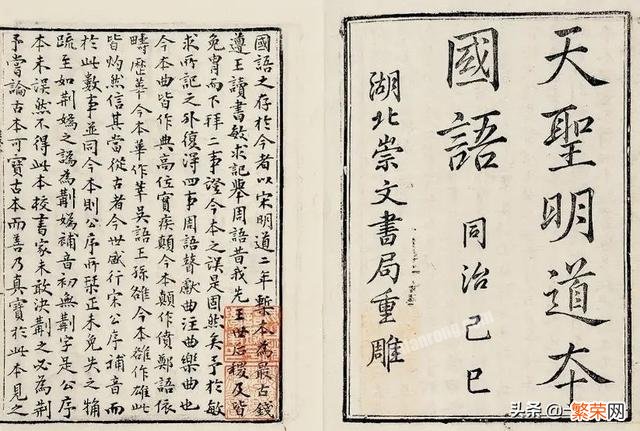 天聖明道本
國語 同治己巳
湖北崇文書局重雕
國語之存於今者以宋明道二年槧本為最古錢
遵王讀書敏求記舉周語昔我先王世后稷及皆
免冑而下拜二事證今本之誤是固然矣予於敏
求所記之外復得四事周語瞽獻曲注曲樂曲也
今本曲皆作典高位寔疾顛今本顛作僨鄭語依
疇歷華今本華作莘吳語王孫雒今本雒作雄此
皆灼然信其當從古者今世盛行宋公序補音而
於此數事並同今本則公序所栞正未免失之觕
疏至如荆媯之譌為荆媯補音初無荆字是公序
本未誤然不得此本校書家未敢決荆之必為荆
予嘗論古本可寶古本而善乃真寶於此本見之
头条
繁荣网